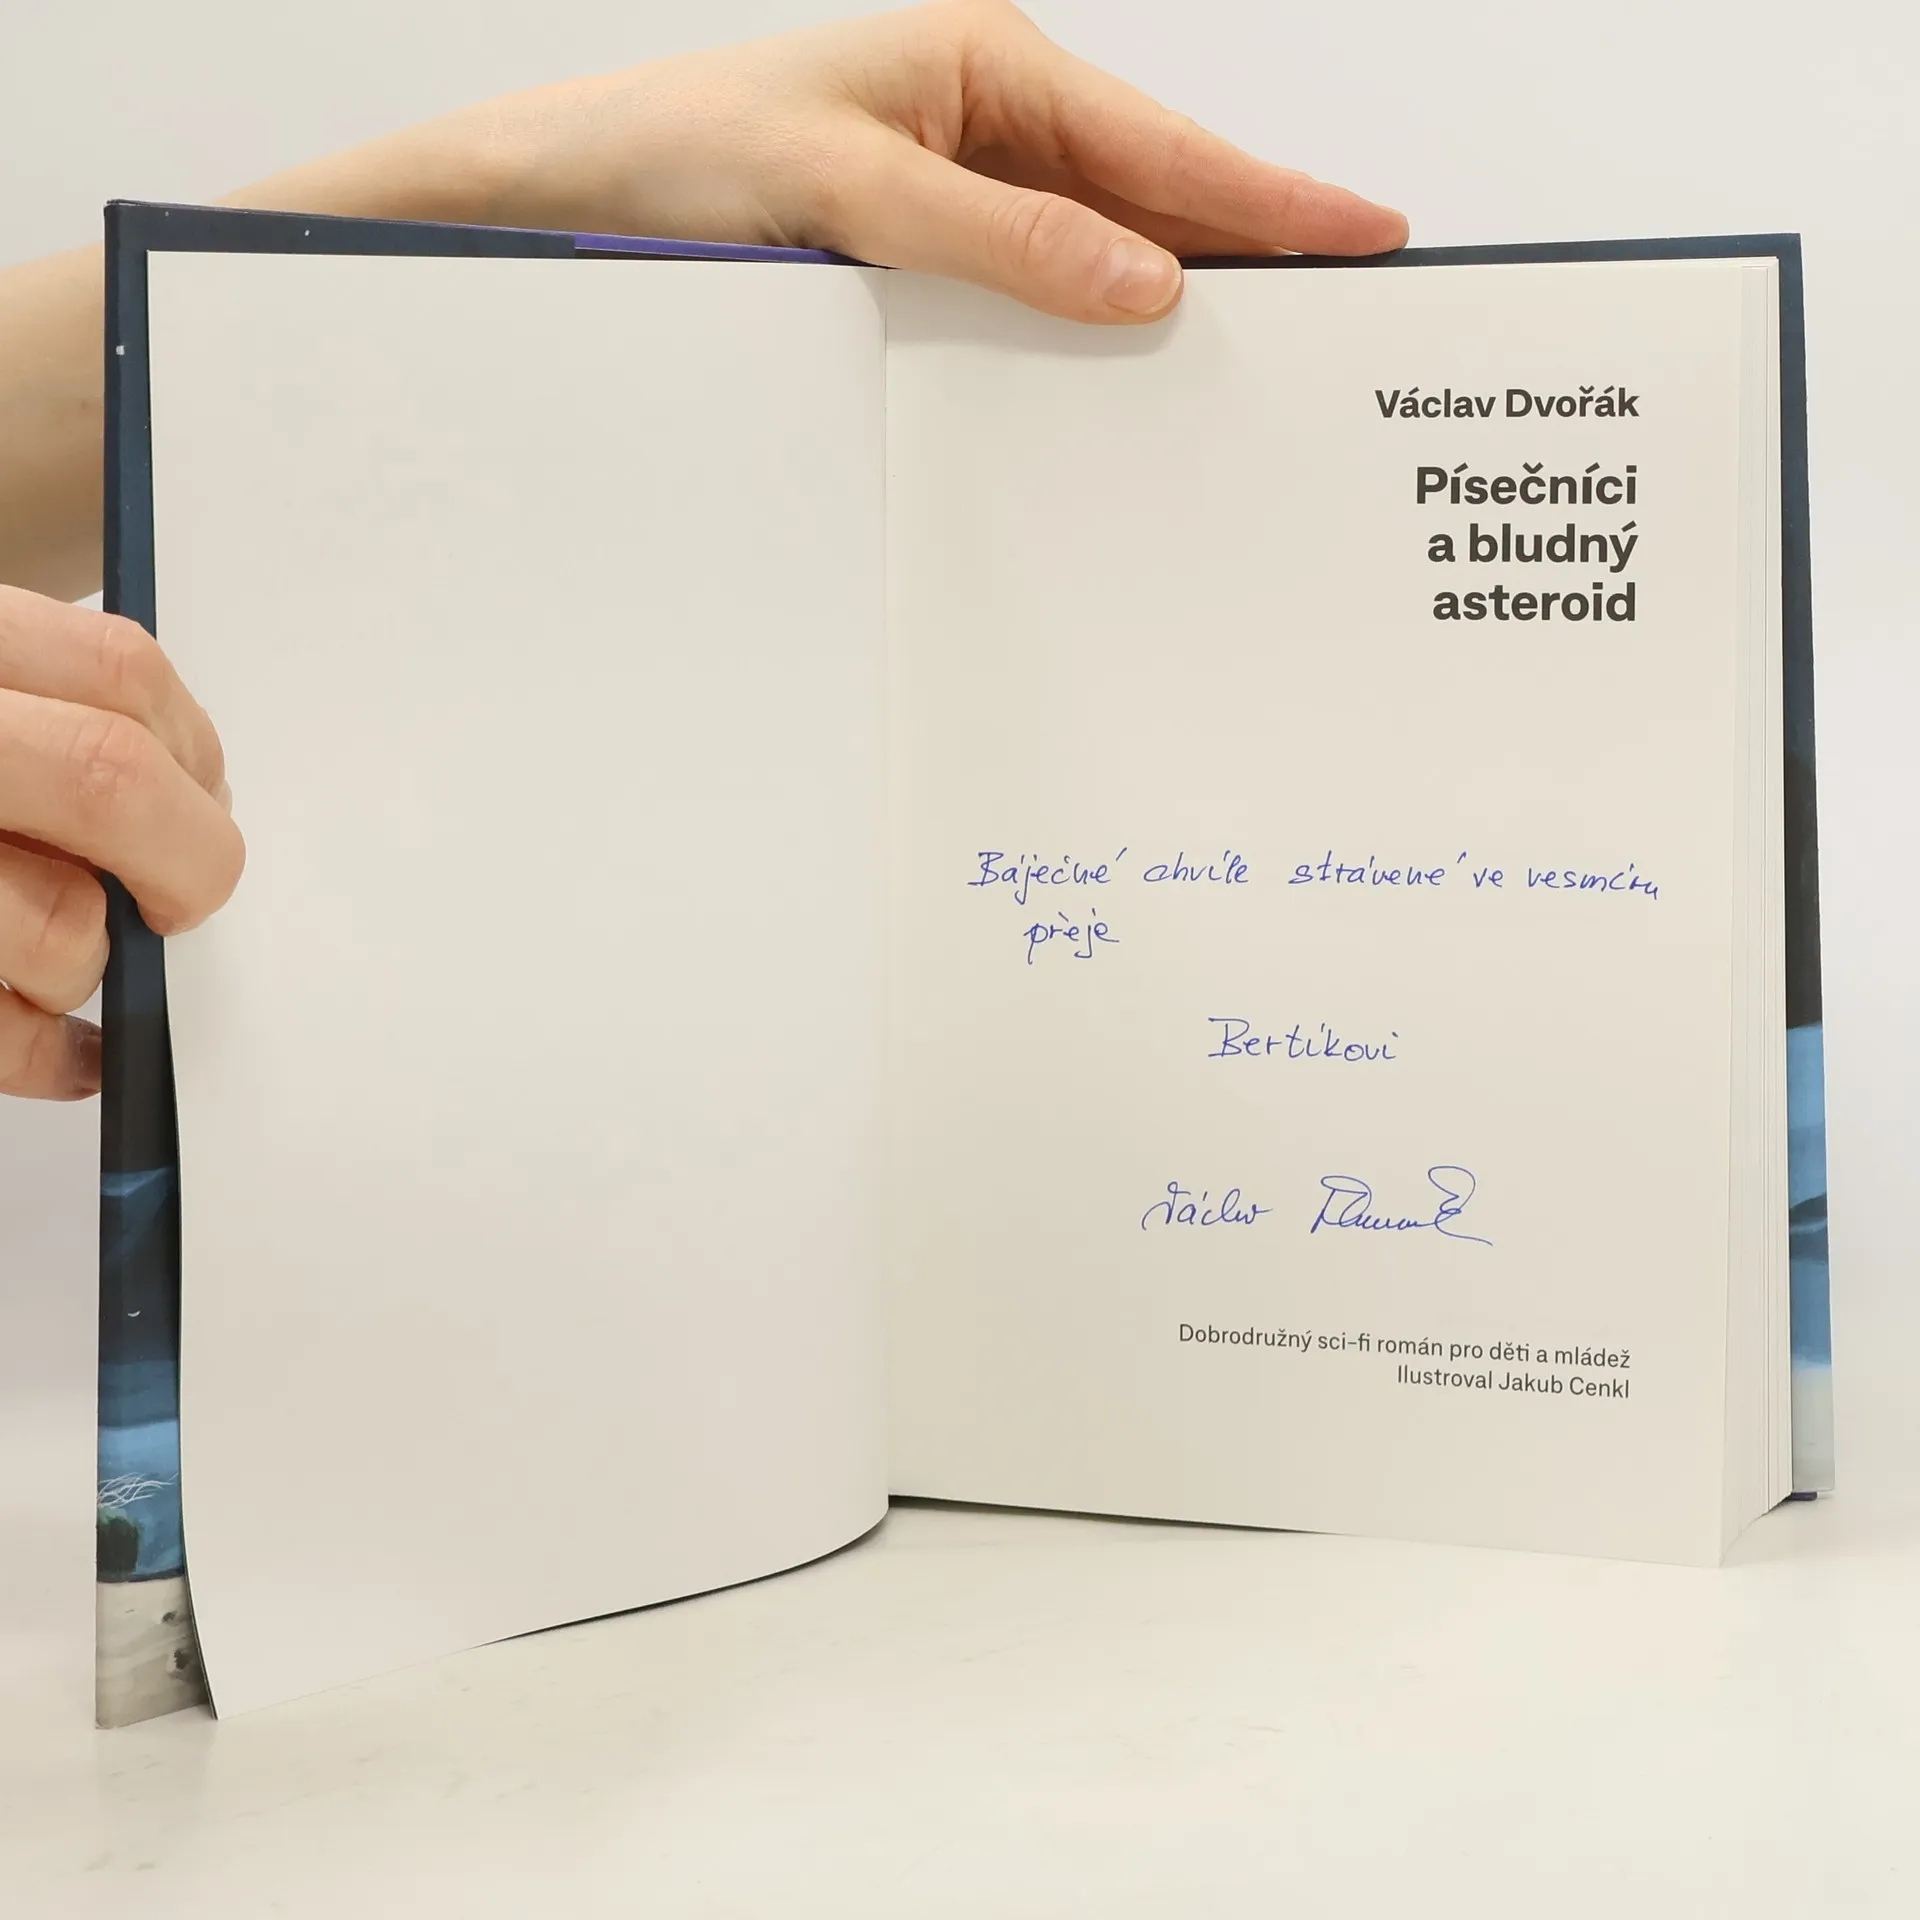 Václav Dvořák
Písečníci
a bludný
asteroid
Báječné chvíle strávené ve vesmíru
přeje
Bertíkovi
Václav Dvořák
Dobrodružný sci-fi román pro děti a mládež
Ilustroval Jakub Cenkl